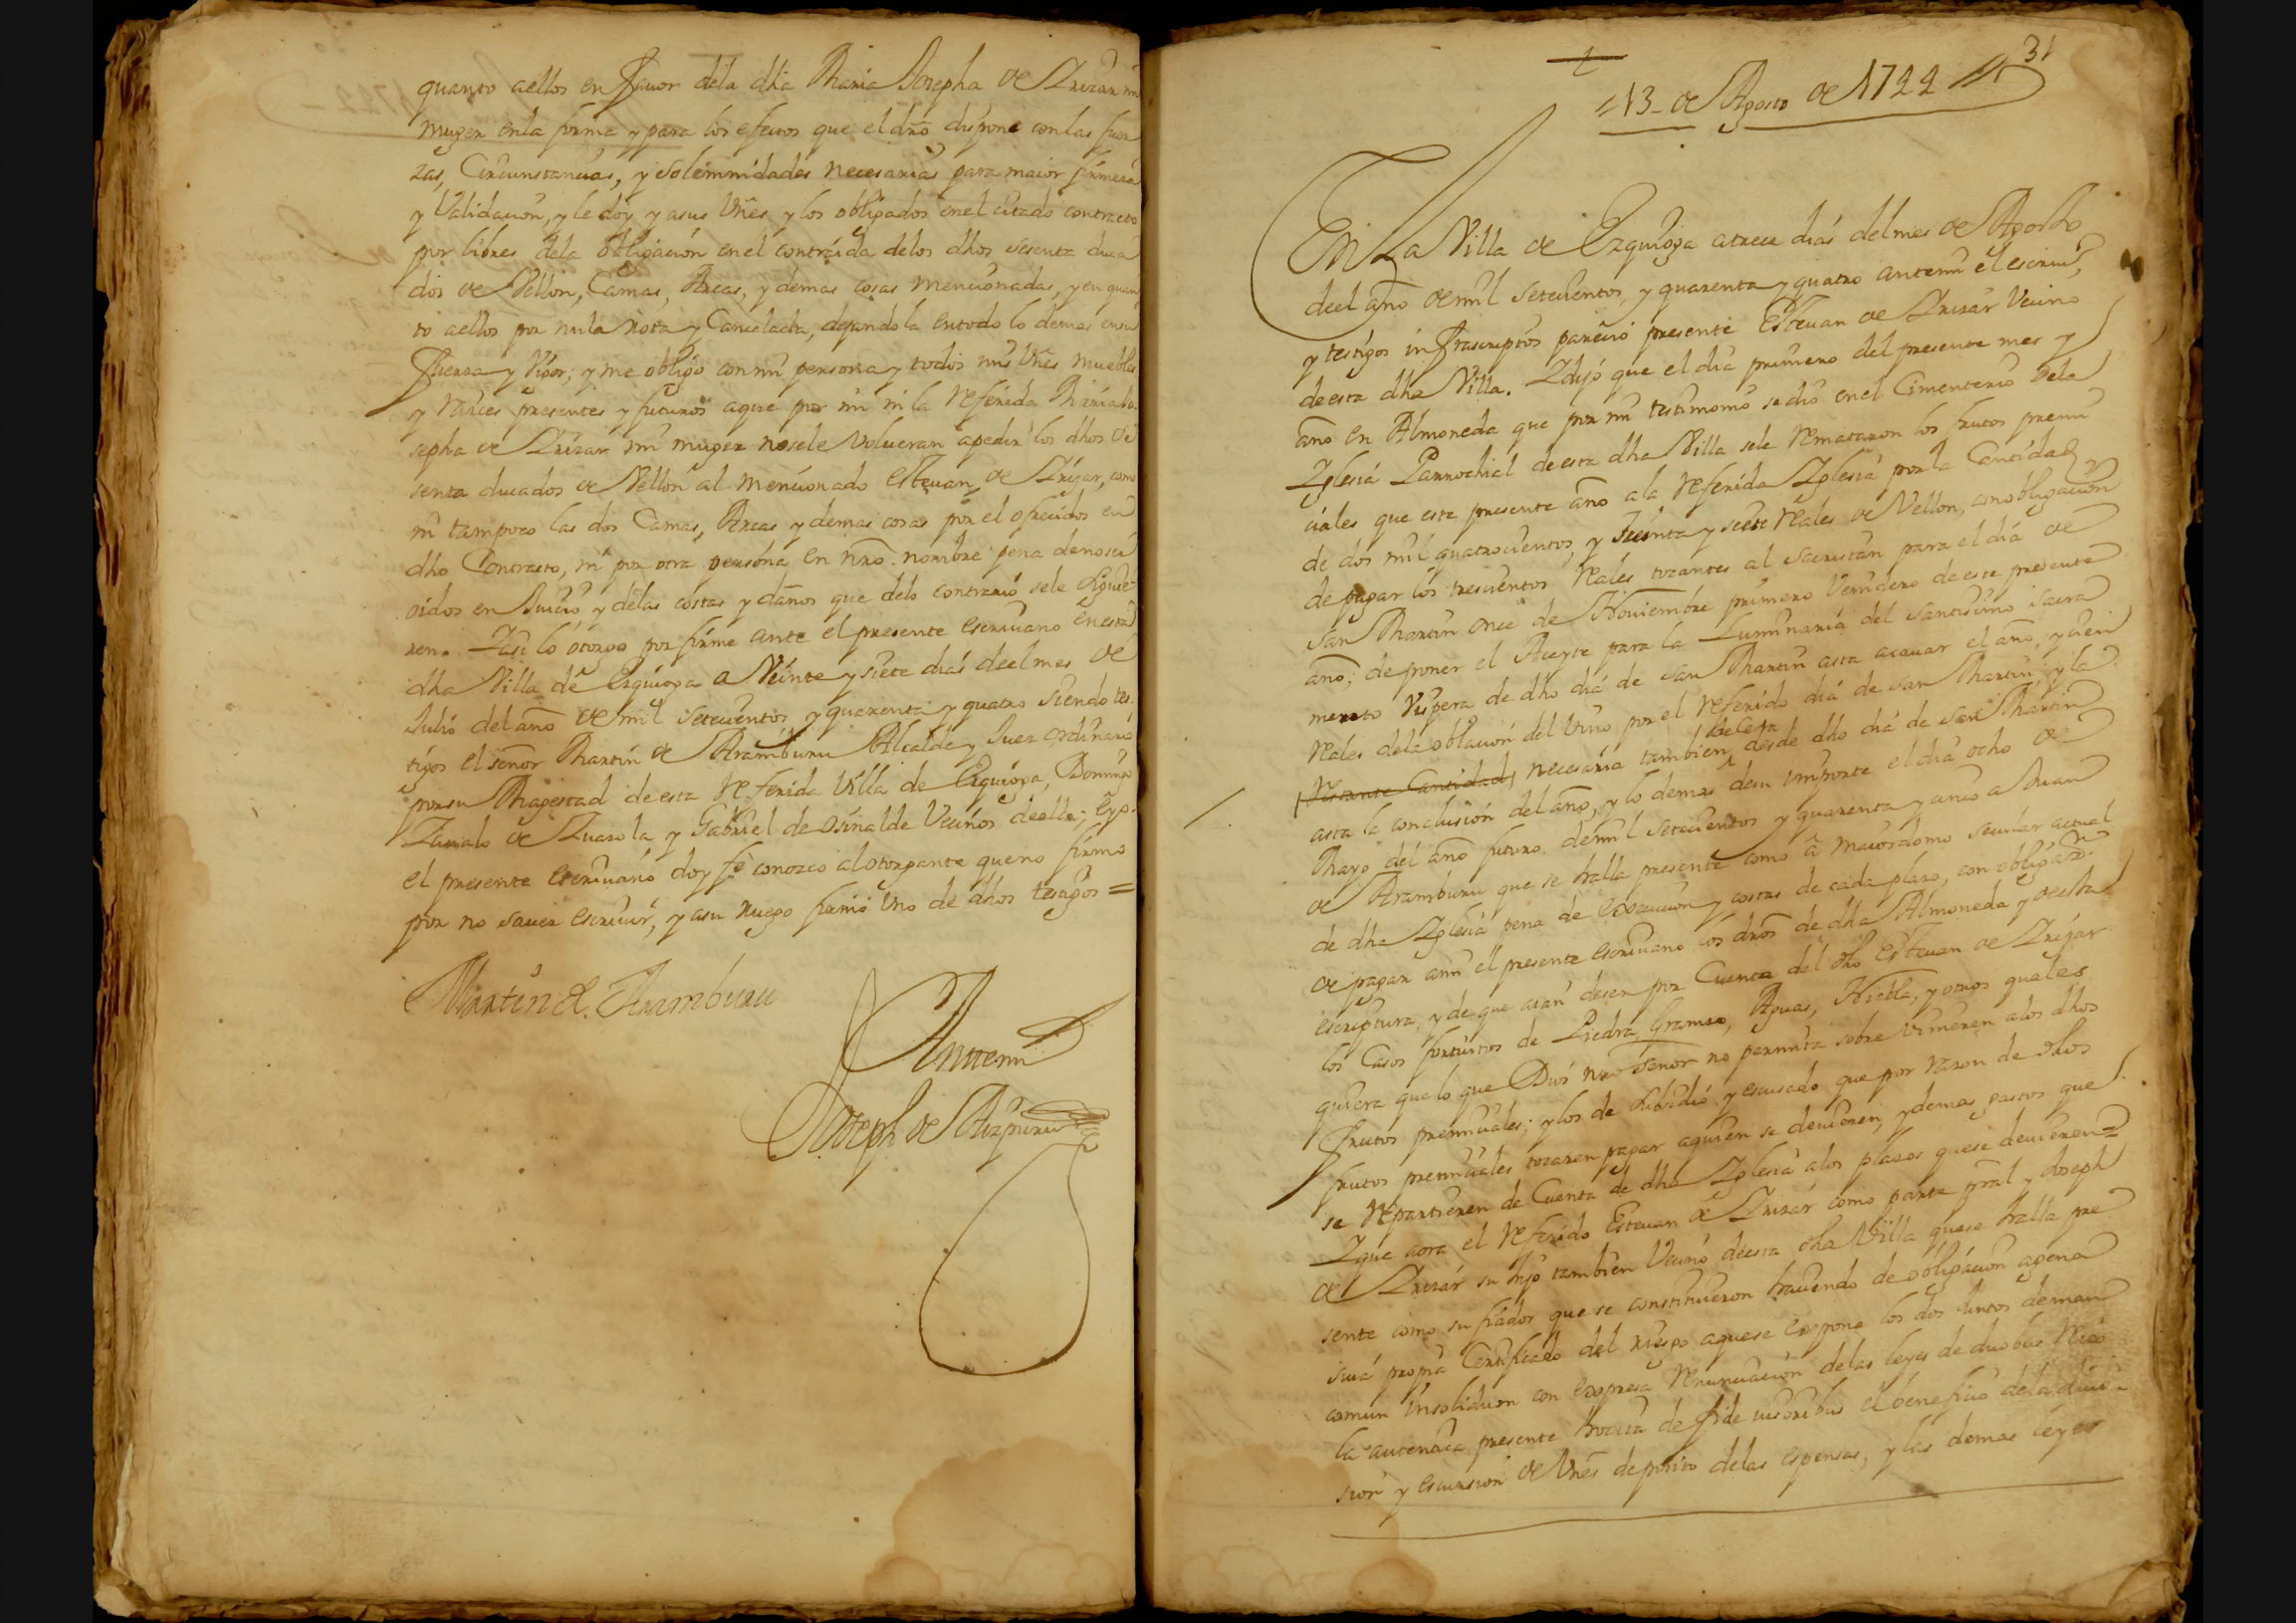 quanto aellos en favor dela dha Maria Josepha de Irizar mi
muger enla forma y para los efectos que el dro dispone con las fuer
zas, Circunstancias, y solemnidades necesarias para maior firmeza
y Validacion, y le doy y a sus Vnes y los obligados enel citado contracto
por libres dela obligacion en el contraida delos dhos sesenta duca
dos de Vellon, Camas, Arcas, y demas cosas mencionadas, y en quan
to aellos por nula rota y Cancelada, dejandola entodo lo demas en su
fuerza y Vigor; y me obligo con mi persona y todos mis Vnes muebles
y raices presentes y futuros aque por mi ni la referida Maria Jo
sepha de Irizar mi muger nosele volueran apedir los dhos se
senta ducados de Vellon al mencionado Estevan de Irizar, como
ni tampoco las dos Camas, Arcas y demas cosas por el ofrecidos en
dho Contracto, ni por otra persona en nro. nombre pena denoser
oidos en Juicio y delas costas y daños que delo contrario sele siguie
ren. Iasi lo otorgo por firme ante el presente escrivano en esta
dha Villa de Ezquioga a Veinte y siete dias deel mes de
Julio del año de mil setecientos y quarenta y quatro siendo tes
tigos el señor Martin de Aramburu Alcalde y Juez ordinario
por su Magestad de esta referida Villa de Ezquioga, Domingo
de y Gabriel de Osinalde Vecinos de ella; Eyo
el presente escrivano doy fe conozco al otorgante que no firmo
por no saver escrivir, y asu ruego firmó Vno de dhos testigos =
Martin de Aramburu
Antemi
Joseph de Aizpuru
31
13 de Agosto de 1744
En La Villa de Ezquioga atrece dias del mes de Agosto
deel año de mil setecientos y quarenta y quatro antemi el escriuo
y testigos infrascriptos pareció presente Estevan de Irizar Vecino
deesta dha Villa. Idijo que el dia primero del presente mes y
año en Almoneda que por mi testimonio se dió en el Cimenterio dela
Iglesia Parrochial deesta dha Villa sele remataron los frutos premi
ciales que este presente año ala referida Iglesia por la Cantidad
de dos mil quatrocientos y y siete reales de Vellon, con obligacion
de pagar los trescientos reales tocantes al sacristan para el dia de
San Martin once de Noviembre primero Venidero de este presente
año; de poner el Aceyte para la Luminaria del santisimo sacra
mento Vispera de dho dia de san Martin asta acavar el año, y cien
reales dela oblacion del Vino por el referido dia de san Martin, y la
restante Cantidad necesaria tambien desde dho dia de san Martin
asta la conclusion del año, y lo demas desu importe el dia ocho de
Mayo del año futuro de mil setecientos y quarenta y cinco a Juan
de Aramburu que se halla presente como á Maiordomo secular actual
de dha Iglesia pena de execucion y costas de cada plazo, con obligaon
de pagar ami el presente escrivano los dros de dha Almoneda y deesta
escriptura, y de que aian deser por Cuenta del dho Estevan de Irizar
los Casos fortuitos de Piedra, Granizo, Aguas, Niebla, y otros quales
quiera que lo que Dios nro señor no permita sobre vinieren alos dhos
frutos premiciales; y los de subsidio y escusado que por razon de dhos
frutos premiciales tocaren pagar aquien se devieren, y demas gastos que
se repartieren de Cuenta de dha Iglesia alos plazos quese devieren =
Ique aora el referido Estevan de Irizar como parte pral y Joseph
de Irizar su hijo tambien Vecino deesta dha Villa quese halla pre
sente como su fiador que se constituieron haciendo de obligacion agena
suia propia Certificado del riesgo aquese expone los dos juntos deman
comun insolidum con expresa renunciacion delas leyes de duobus reis
la autentica presente hocita de fide iusoribus el beneficio dela divi
sion y escursion de Vnes deposito delas espensas, y las demas leyes